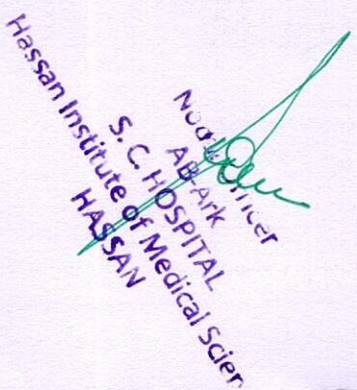 Officer
AB-Ark
S. C. HOSPITAL
Hassan Institute of Medical Scien
HASSAN